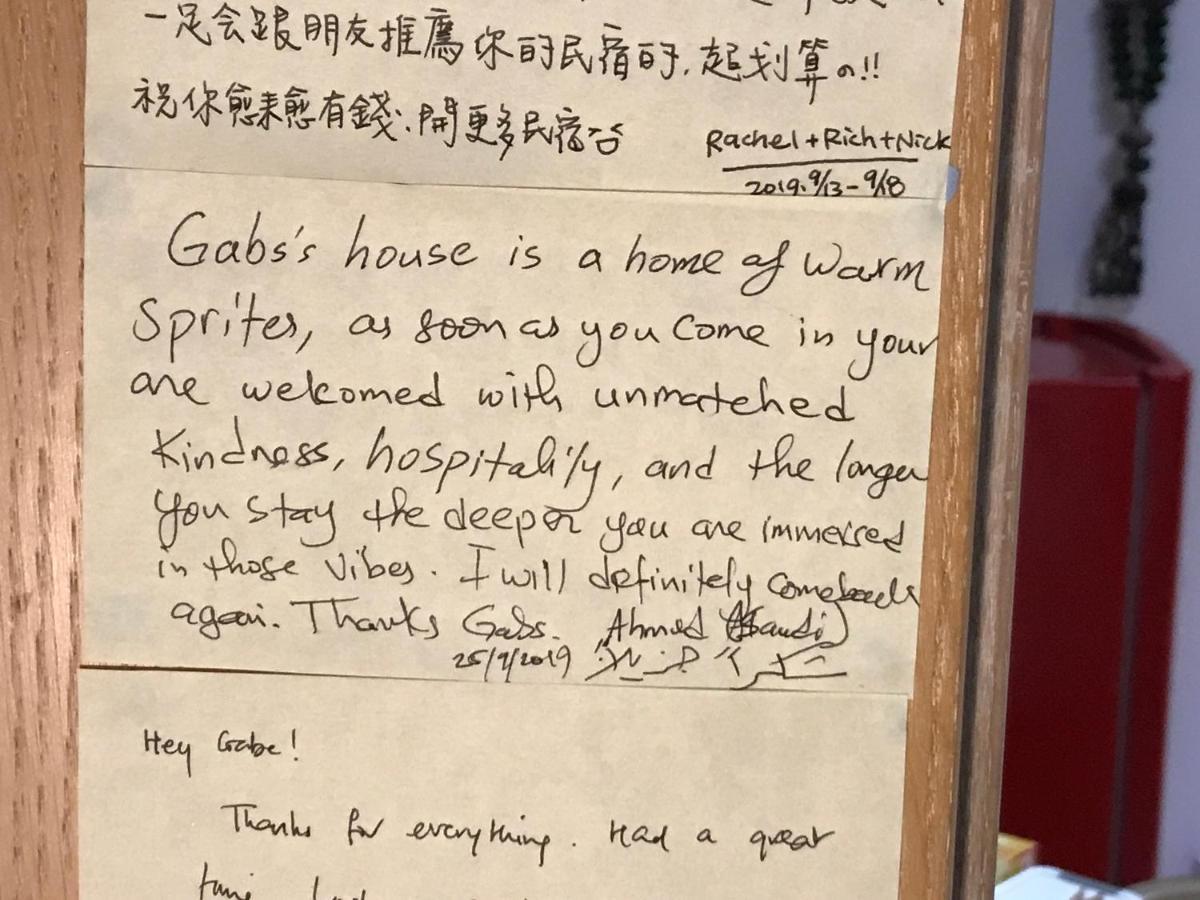 一定会跟朋友推薦你的民宿的,超划算の!!
祝你愈來愈有錢,開更多民宿
Rachel+Rich+Nick
2019.9/13-9/18
Gabs's house is a home of warm
Sprites, as soon as you come in your
are welcomed with unmatched
Kindness, hospitality, and the longer
you stay the deeper you are immersed
in those vibes. I will definitely comeback
again. Thanks Gabs. Ahmed (Saudi)
25/9/2019
Hey Gabe!
Thanks for everything. Had a great
time